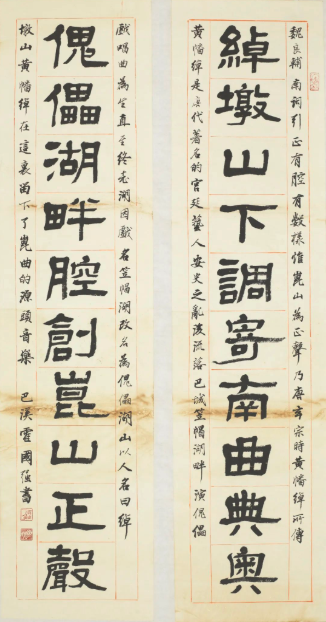 魏良輔南詞引正有腔有數樣惟崑山為正聲乃唐玄宗時黃幡綽所傳
綽墩山下調寄南曲典奥
黃幡綽是唐代著名的宮廷藝人安史之亂後流落巴城笠帽湖畔演傀儡
戲唱曲為生直至終老湖因戲名笠帽湖改名為傀儡湖山以人名曰綽
傀儡湖畔腔創崑山正聲
墩山黃幡綽在這裏留下了崑曲的源頭音樂 巴溪霍國強書